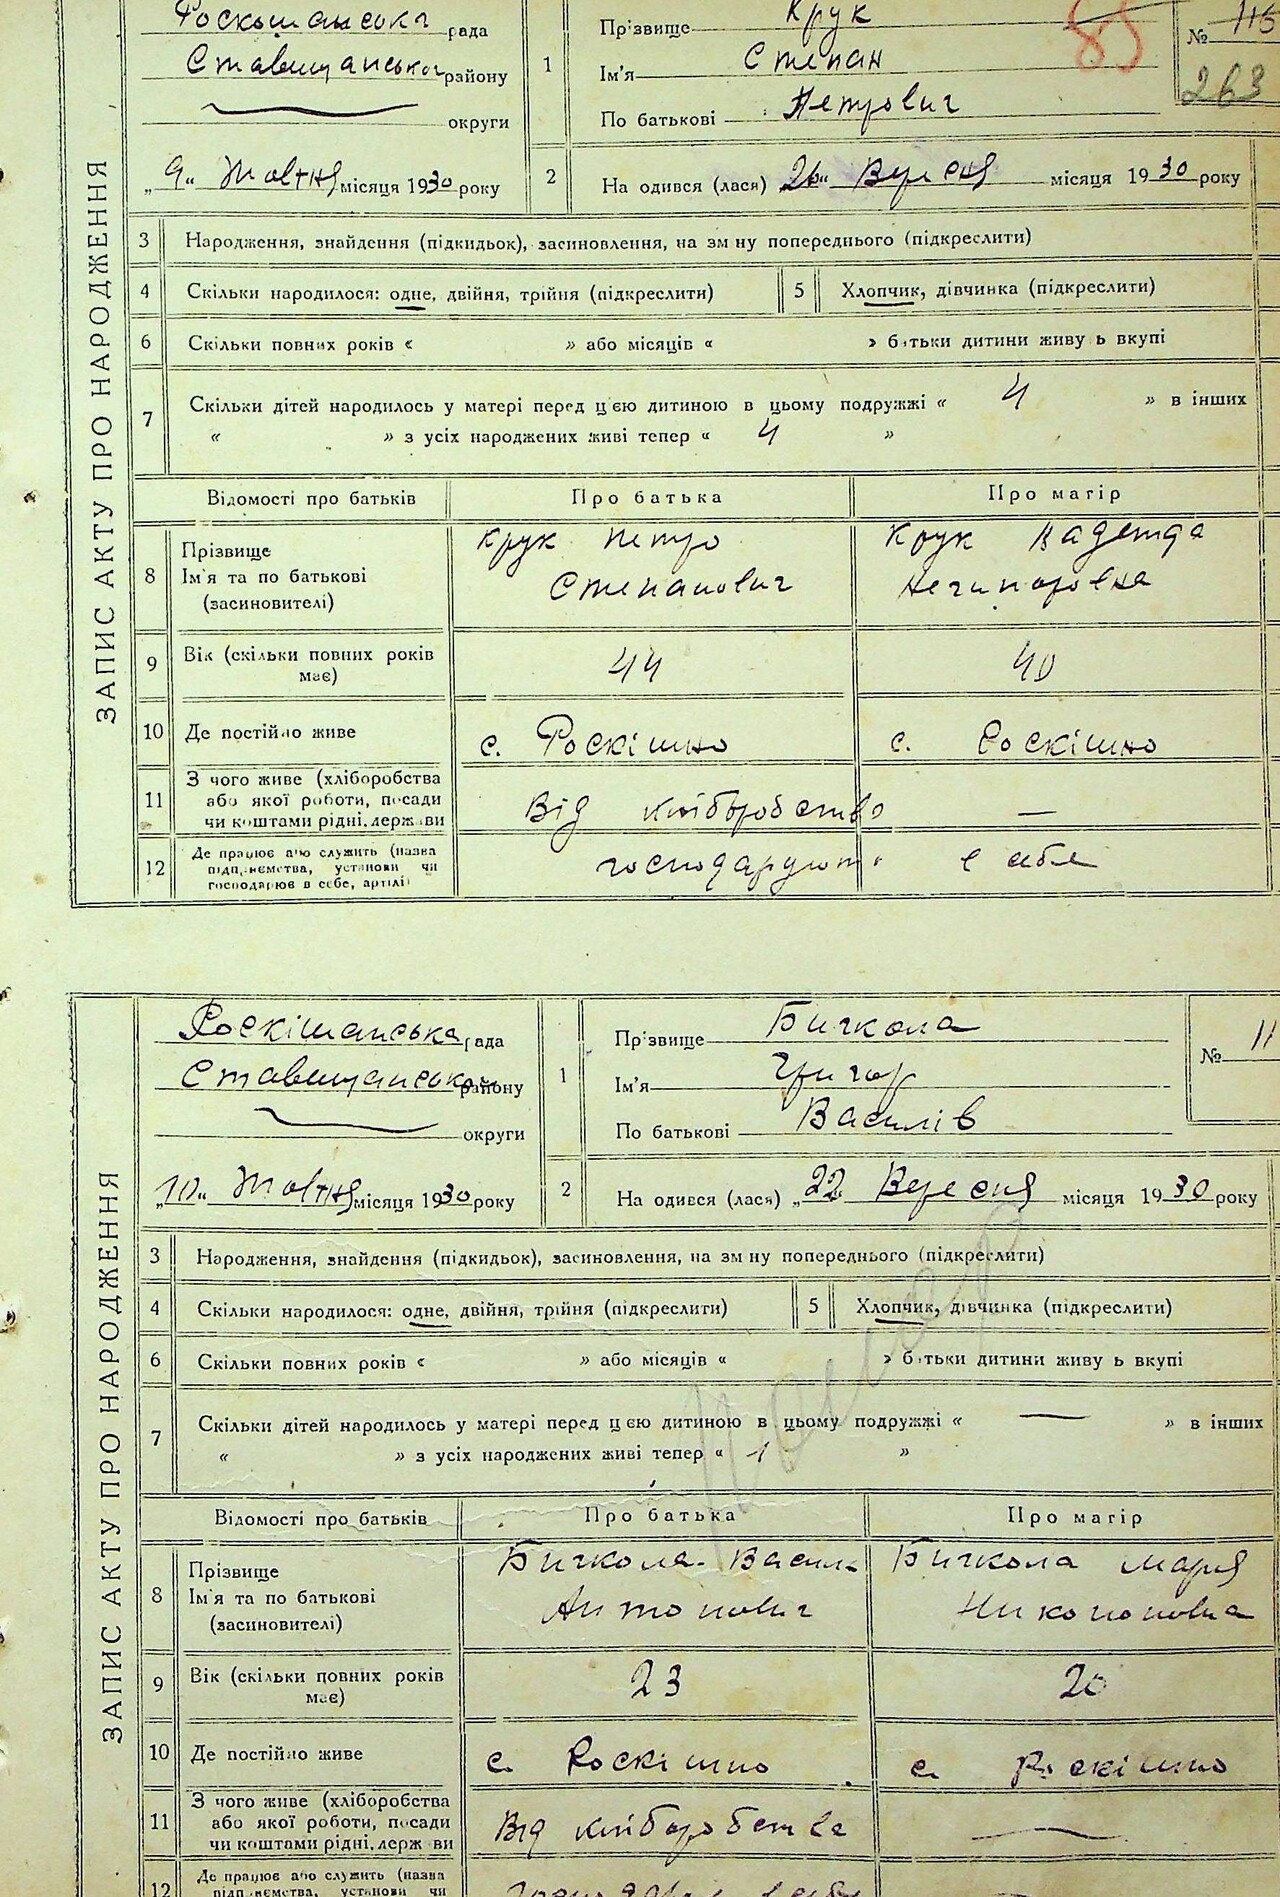 ЗАПИС АКТУ ПРО НАРОДЖЕННЯ
Роскошанська рада
Ставищанського району
округи
„9" Жовтня місяця 1930 року
1
Прізвище Крук
Ім'я Степан
По батькові Петрович
85
№ 115
263
2
На одився (лася) 26" Вересня місяця 1930 року
3 Народження, знайдення (підкидьок), засиновлення, на зм ну попереднього (підкреслити)
4 Скільки народилося: одне, двійня, трійня (підкреслити) 5 Хлопчик, дівчинка (підкреслити)
6 Скільки повних років « » або місяців « » батьки дитини живу ь вкупі
7 Скільки дітей народилось у матері перед цією дитиною в цьому подружжі « 4 » в інших
« » з усіх народжених живі тепер « 4 »
Відомості про батьків Про батька Про матір
8 Прізвище Ім'я та по батькові (засиновителі)
Крук Петро Степанович
Крук Надежда Нечипоровна
9 Вік (скільки повних років має) 44 40
10 Де постійно живе с. Роскішно с. Роскішно
11 З чого живе (хліборобства або якої роботи, посади чи коштами рідні, держави Від хліборобство —
12 Де працює або служить (назва підприємства, установи чи господарює в себе, артілі) господарують в себе
ЗАПИС АКТУ ПРО НАРОДЖЕННЯ
Роскішанська рада
Ставищанського району
округи
„10" Жовтня місяця 1930 року
1
Прізвище Бичкола
Ім'я Григор
По батькові Василів
№ 11
2
На одився (лася) „22 Вересня місяця 1930 року
3 Народження, знайдення (підкидьок), засиновлення, на зм ну попереднього (підкреслити)
4 Скільки народилося: одне, двійня, трійня (підкреслити) 5 Хлопчик, дівчинка (підкреслити)
6 Скільки повних років « » або місяців « » батьки дитини живу ь вкупі
7 Скільки дітей народилось у матері перед цією дитиною в цьому подружжі « — » в інших
« » з усіх народжених живі тепер « 1 »
Помер
Відомості про батьків Про батька Про матір
8 Прізвище Ім'я та по батькові (засиновителі)
Бичкола Васил- Антонович
Бичкола Мария Никоновна
9 Вік (скільки повних років має) 23 20
10 Де постійно живе с. Роскішно с. Роскішно
11 З чого живе (хліборобства або якої роботи, посади чи коштами рідні, держ ви Від хліборобства —
12 Де працює або служить (назва підприємства, установи чи